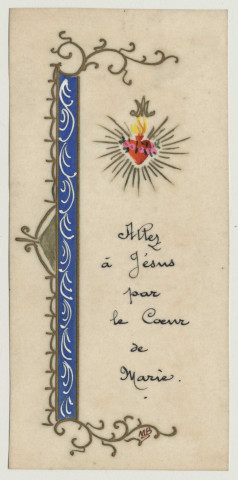 Allez
à Jésus
par
le Cœur
de
Marie.
MB